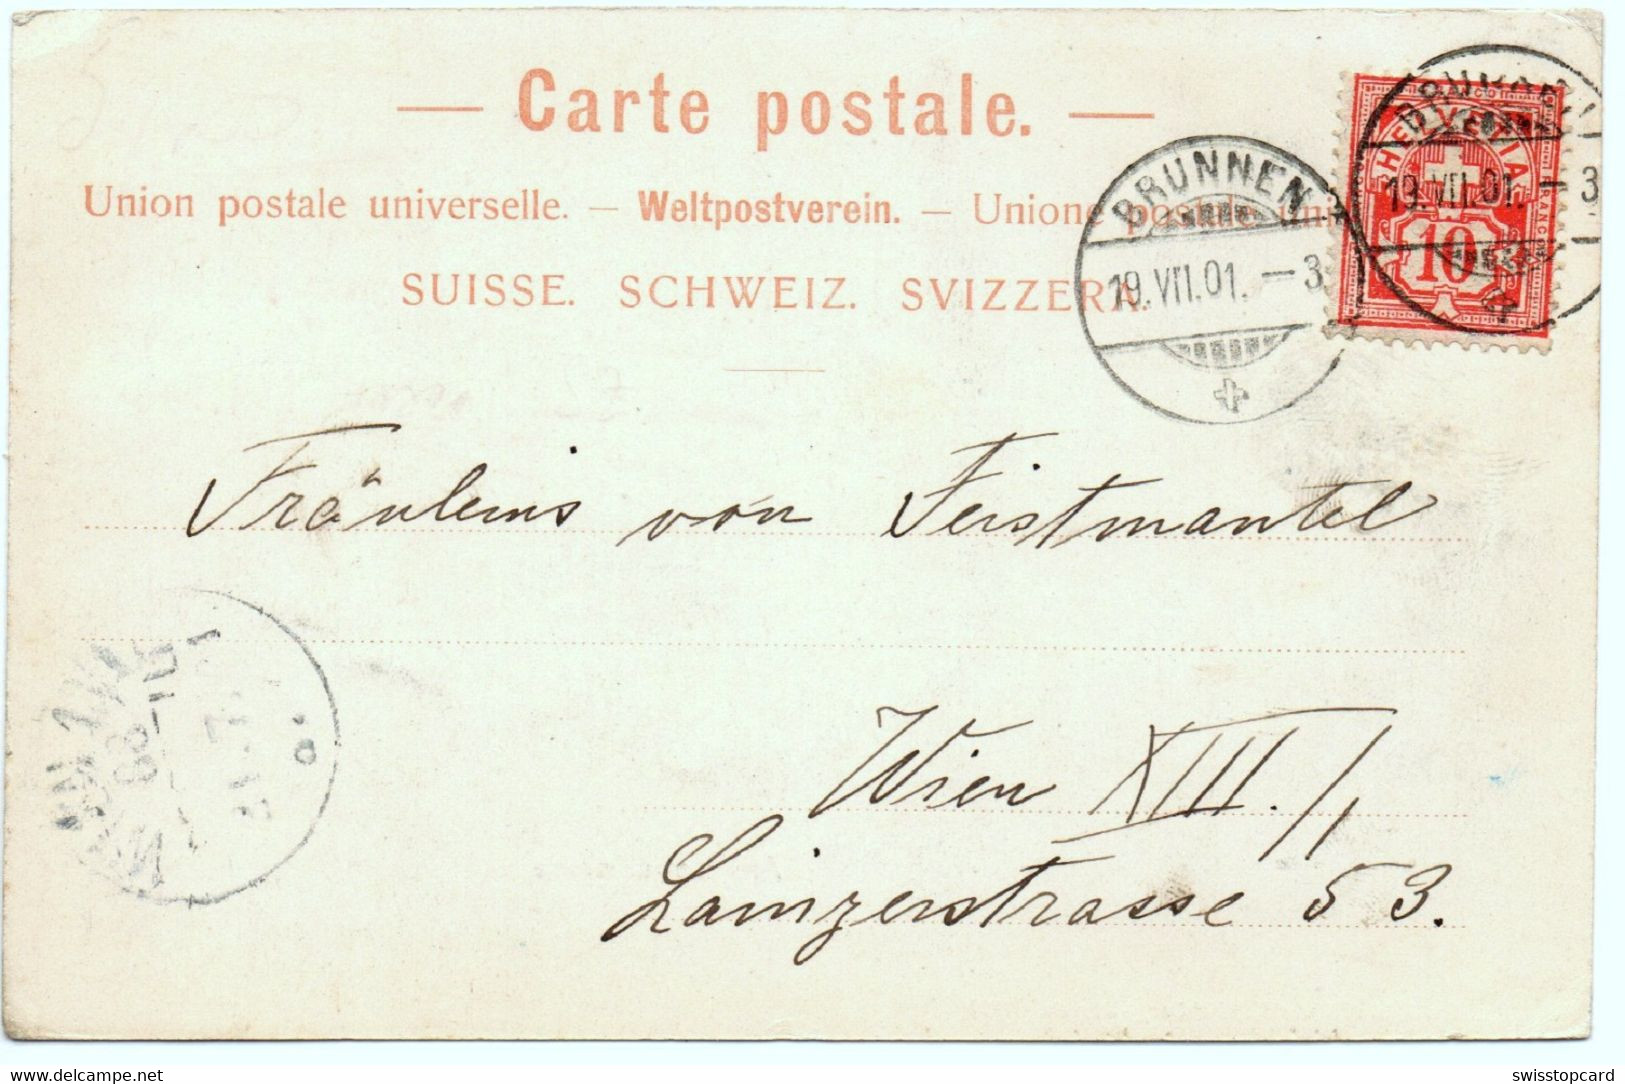 — Carte postale. —
Union postale universelle. — Weltpostverein. — Unione postale uni
SUISSE. SCHWEIZ. SVIZZERA.
BRUNNEN
19.VII.01. – 3
19.VII.01. – 3
HELVETIA
FRANCO
10
Fräuleins von Feistmantel
Wien XIII./1
Lainzerstrasse 53.
delcampe.net
swisstopcard